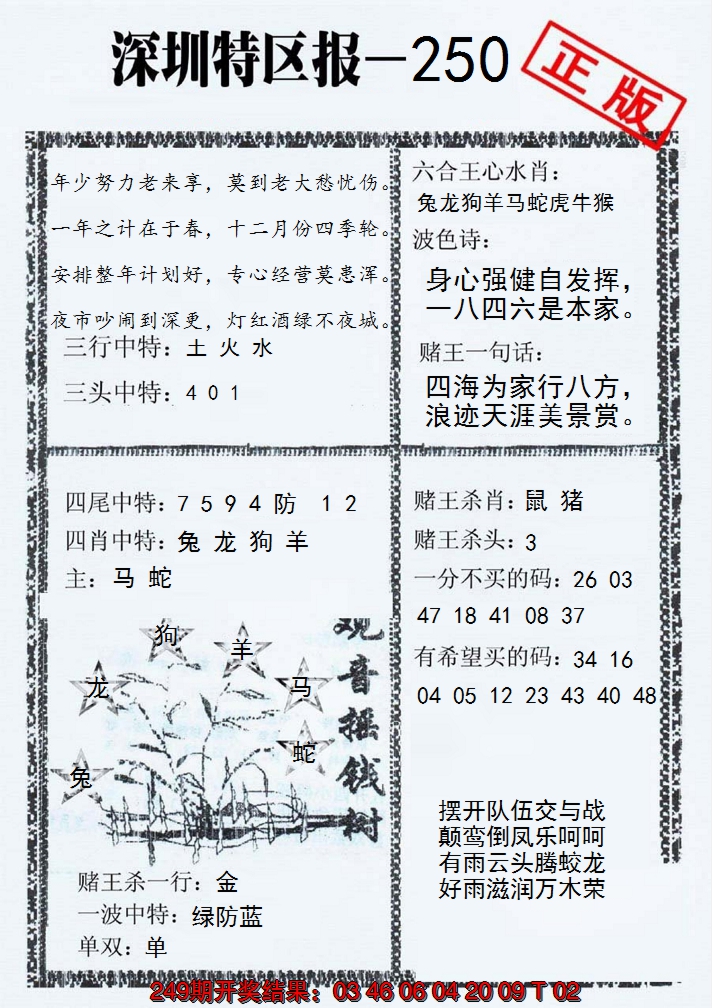 深圳特区报—250
正版
年少努力老来享，莫到老大愁忧伤。
一年之计在于春，十二月份四季轮。
安排整年计划好，专心经营莫患浑。
夜市吵闹到深更，灯红酒绿不夜城。
三行中特：土 火 水
三头中特：4 0 1
六合王心水肖：
兔龙狗羊马蛇虎牛猴
波色诗：
身心强健自发挥，
一八四六是本家。
赌王一句话：
四海为家行八方，
浪迹天涯美景赏。
四尾中特：7 5 9 4 防 1 2
四肖中特：兔 龙 狗 羊
主：马 蛇
狗
羊
龙
马
蛇
兔
观音摇钱树
赌王杀一行：金
一波中特：绿防蓝
单双：单
赌王杀肖：鼠 猪
赌王杀头：3
一分不买的码：26 03
47 18 41 08 37
有希望买的码：34 16
04 05 12 23 43 40 48
摆开队伍交与战
颠鸾倒凤乐呵呵
有雨云头腾蛟龙
好雨滋润万木荣
249期开奖结果：03 46 06 04 20 09 T 02